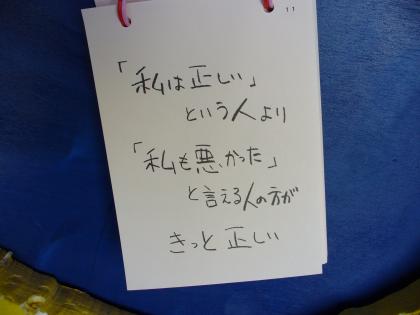 11
「私は正しい」
という人より
「私も悪かった」
と言える人の方が
きっと正しい